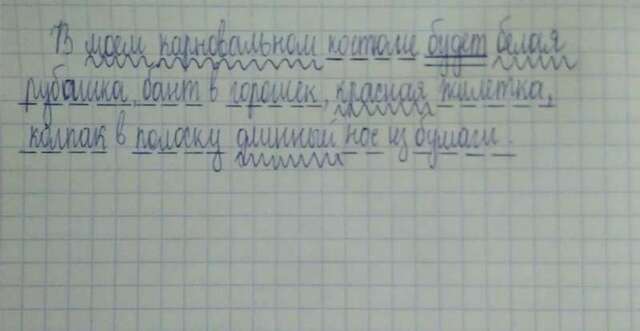 В моем карновальном костюме будет белая
рубашка, бант в горошек, красная жилетка,
колпак в полоску длинный нос из бумаги.